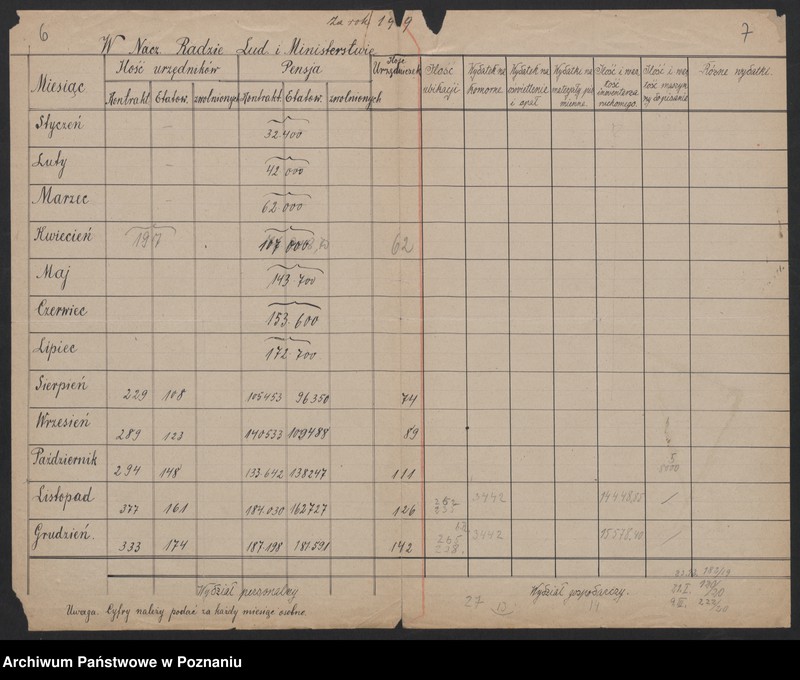 6
za rok 1919
7
W Nacz. Radzie Lud. i Ministerstwie
Miesiąc
Ilość urzędników
Pensja
Ilość Urzędniczek
Ilość ubikacji
Wydatek na komorne
Wydatek na oświetlenie i opał
Wydatki na
Ilość i wartość inwentarza ruchomego.
Ilość i wartość maszyn do pisania
Różne wydatki.
Kontrakt. Etatow. zwolnionych Kontrakt. Etatow. zwolnionych
Styczeń 32.400
Luty 42 000
Marzec 62.000
Kwiecień 107 000 62
Maj 143.700
Czerwiec 153.600
Lipiec 172.700
Sierpień 229 108 105453 96.350 74
Wrzesień 289 123 140533 109488 89
Październik 294 148 133.642 138247 111
Listopad 377 161 184.030 162727 126 3442 14448,35
Grudzień. 333 174 187.198 181591 142 3442 15578,40
Wydział personalny
Wydział gospodarczy.
Uwaga. Cyfry należy podać za każdy miesiąc osobno.
27 13 14
Archiwum Państwowe w Poznaniu